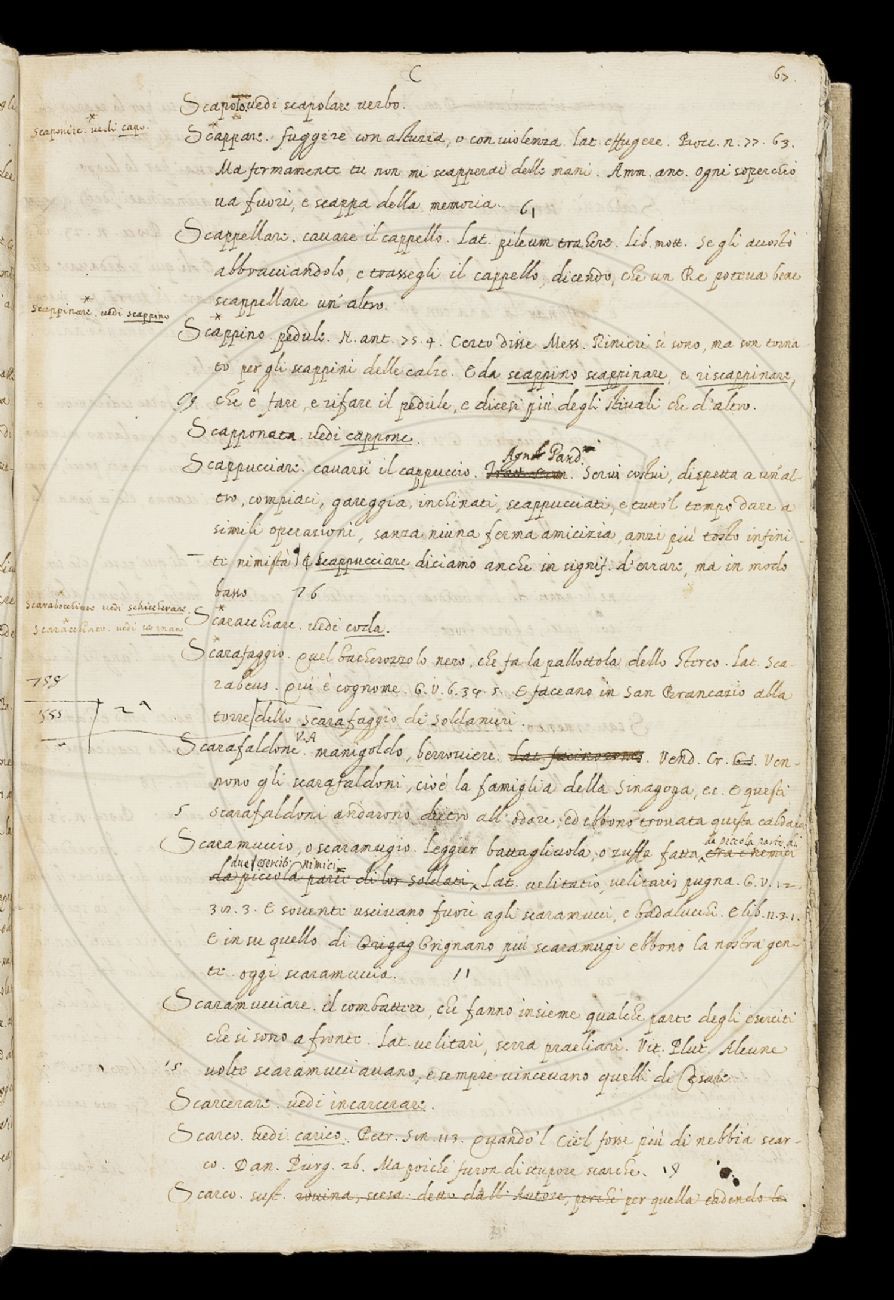 C
67.
Scapolo. vedi scapolare verbo.
Scaponire. vedi capo.
Scappare. fuggire con astuzia, o con violenza. Lat. effugere. Bocc. n. 77. 63.
Ma fermamente tu non mi scapperai delle mani. Amm. ant. ogni soperchio
va fuori, e scappa della memoria. 61
Scappellare. cavare il cappello. Lat. pileum trahere. lib. mott. se gli accostò
abbracciandolo, e trassegli il cappello, dicendo, che un Re poteva bene
scappellare un' altro.
Scappinare. vedi scappino
Scappino. pedule. N. ant. 75. 4. Certo disse Mess. Rinieri sì sono, ma son torna
to per gli scappini delle calze. E da scappino scappinare, e riscappinare,
che è fare, e rifare il pedule, e dicesi più degli stivali che d'altro.
Scapponata. vedi cappone.
Scappucciare. cavarsi il cappuccio. Agn. Pand. Servi costui, dispetta a un' al-
tro, compiaci, gareggia, inchinati, scappucciati, e tutto 'l tempo dare a
simili operazioni, sanza niuna ferma amicizia, anzi più tosto infini-
te nimistà. E scappucciare diciamo anche in signif. d'errare, ma in modo
basso 76
Scarabocchiare vedi schiccherare.
Scaracchiare. vedi
Scarafaggio. Quel bacherozzolo nero, che fa la pallottola dello sterco. Lat. sca-
rabeus. Qui è cognome. G. V. 6. 34. 5. E faceano in San Brancazio alla
torre dello scarafaggio de' Soldanieri.
Scarafaldone. V.A. manigoldo, berroviere. Vend. Cr. 65. Ven-
nono gli scarafaldoni, cioè la famiglia della Sinagoga, ec. E questi
5 scarafaldoni andarono dietro all' odore, ed ebbono trovata questa caldaia
Scaramuccio, o scaramugio. leggier battagliuola, o zuffa fatta, da piccola parte di
due eserciti nimici
da piccola parte di lor soldati. Lat. velitatio, velitaris pugna. G. V. 12.
3. E sovente uscivano fuori agli scaramucci, e badalucchi. E lib. 11. 3. 1.
E in su quello di Brignano più scaramugi ebbono la nostra gen-
te. oggi scaramuccia. 11
Scaramucciare. il combattere, che fanno insieme qualche parte degli eserciti
che si sono a fronte. Lat. velitari, serra praeliari. Vit. Plut. Alcune
15 volte scaramucciavano, e sempre vincevano quelli di Cesare
Scarcerare. vedi incarcerare.
Scarco. vedi carico. Petr. Son. 113. Quando 'l Ciel fosse più di nebbia scar-
co. Dan. Purg. 26. Ma poichè furon di stupore scarche. 18
Scarco. sust. rovina, scesa: detto dall' Autore, perchè per quella cadendo le